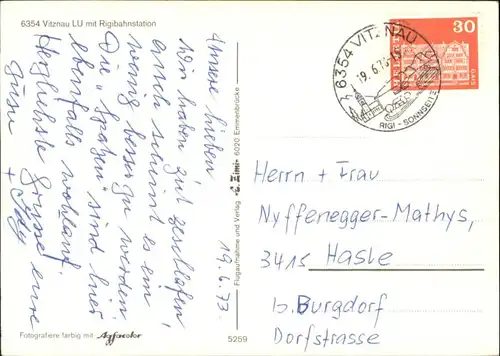 6354 Vitznau LU mit Rigibahnstation
19.6.73
unsere lieben,
Wir haben gut geschlafen,
auch scheint es ein
wenig besser zu werden
Die „Spatzen" sind hier
ebenfalls wohlauf.
Herzlichste Grüsse eure
+
Fotografiere farbig mit Agfacolor
5259
Flugaufnahme und Verlag
6020 Emmenbrücke
6354 VITZNAU
19.6.73
RIGI - SONNSEITE
30
HELVETIA
Herrn + Frau
Nyffenegger-Mathys,
3415 Hasle
b. Burgdorf
Dorfstrasse